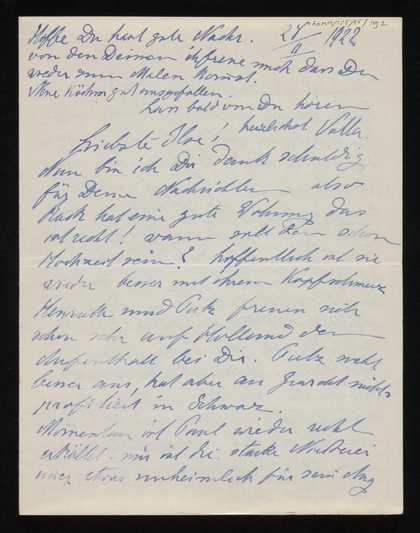 Hoffe Du hast gute Nachr. 28/II 1922
von den Deinen ich freue mich dass Du
wieder zum Malen kommst.
gut ausgefallen.
Lass bald von Dir hören
herzlichst
Liebste Ilse!
Nun bin ich Dir Dank schuldig
für Deine Nachrichten also
hat eine gute Wohnung das
ist recht! wann soll denn schon
Hochzeit sein? hoffentlich ist sie
wieder besser mit ihrem Kopfschmerz
und Putz freuen sich
schon sehr auf Holland den
Aufenthalt bei Dir. Putz sieht
besser aus, hat aber an Gewicht nichts
profitiert in Schwarz.
Momentan ist Paul wieder recht
erkältet mir ist die starke
immer etwas unheimlich für sein Aug